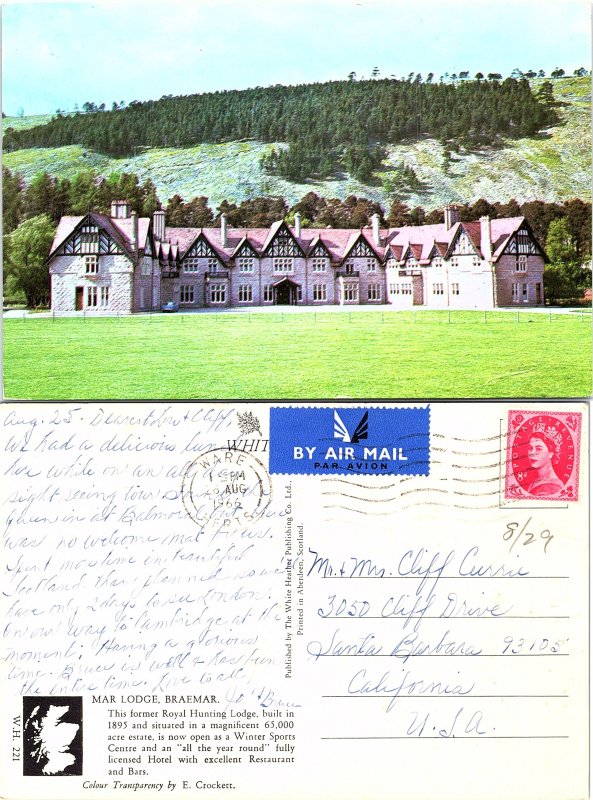 Aug. 25. Dearest Lou & Cliff,
We had a delicious lun
here while on an all day
sight seeing tour
in at Balmoral but there
was no welcome mat for us.
Spent more time in beautiful
Scotland than planned so we
have only 2 days to see London.
on our way to Cambridge at the
moment. Having a glorious
time. Bruce is well & has been
the entire time. Love to all,
Jo & Bruce
WHIT
BY AIR MAIL
PAR AVION
WARE
PM
AUG
1966
HERTS
POSTAGE
REVENUE
8D
8/29
Mr. & Mrs. Cliff Currie
3050 Cliff Drive
Santa Barbara 93105
California
U.S.A.
Published by The White Heather Publishing Co. Ltd.,
Printed in Aberdeen, Scotland.
MAR LODGE, BRAEMAR.
This former Royal Hunting Lodge, built in
1895 and situated in a magnificent 65,000
acre estate, is now open as a Winter Sports
Centre and an "all the year round" fully
licensed Hotel with excellent Restaurant
and Bars.
Colour Transparency by E. Crockett.
W.H. 221